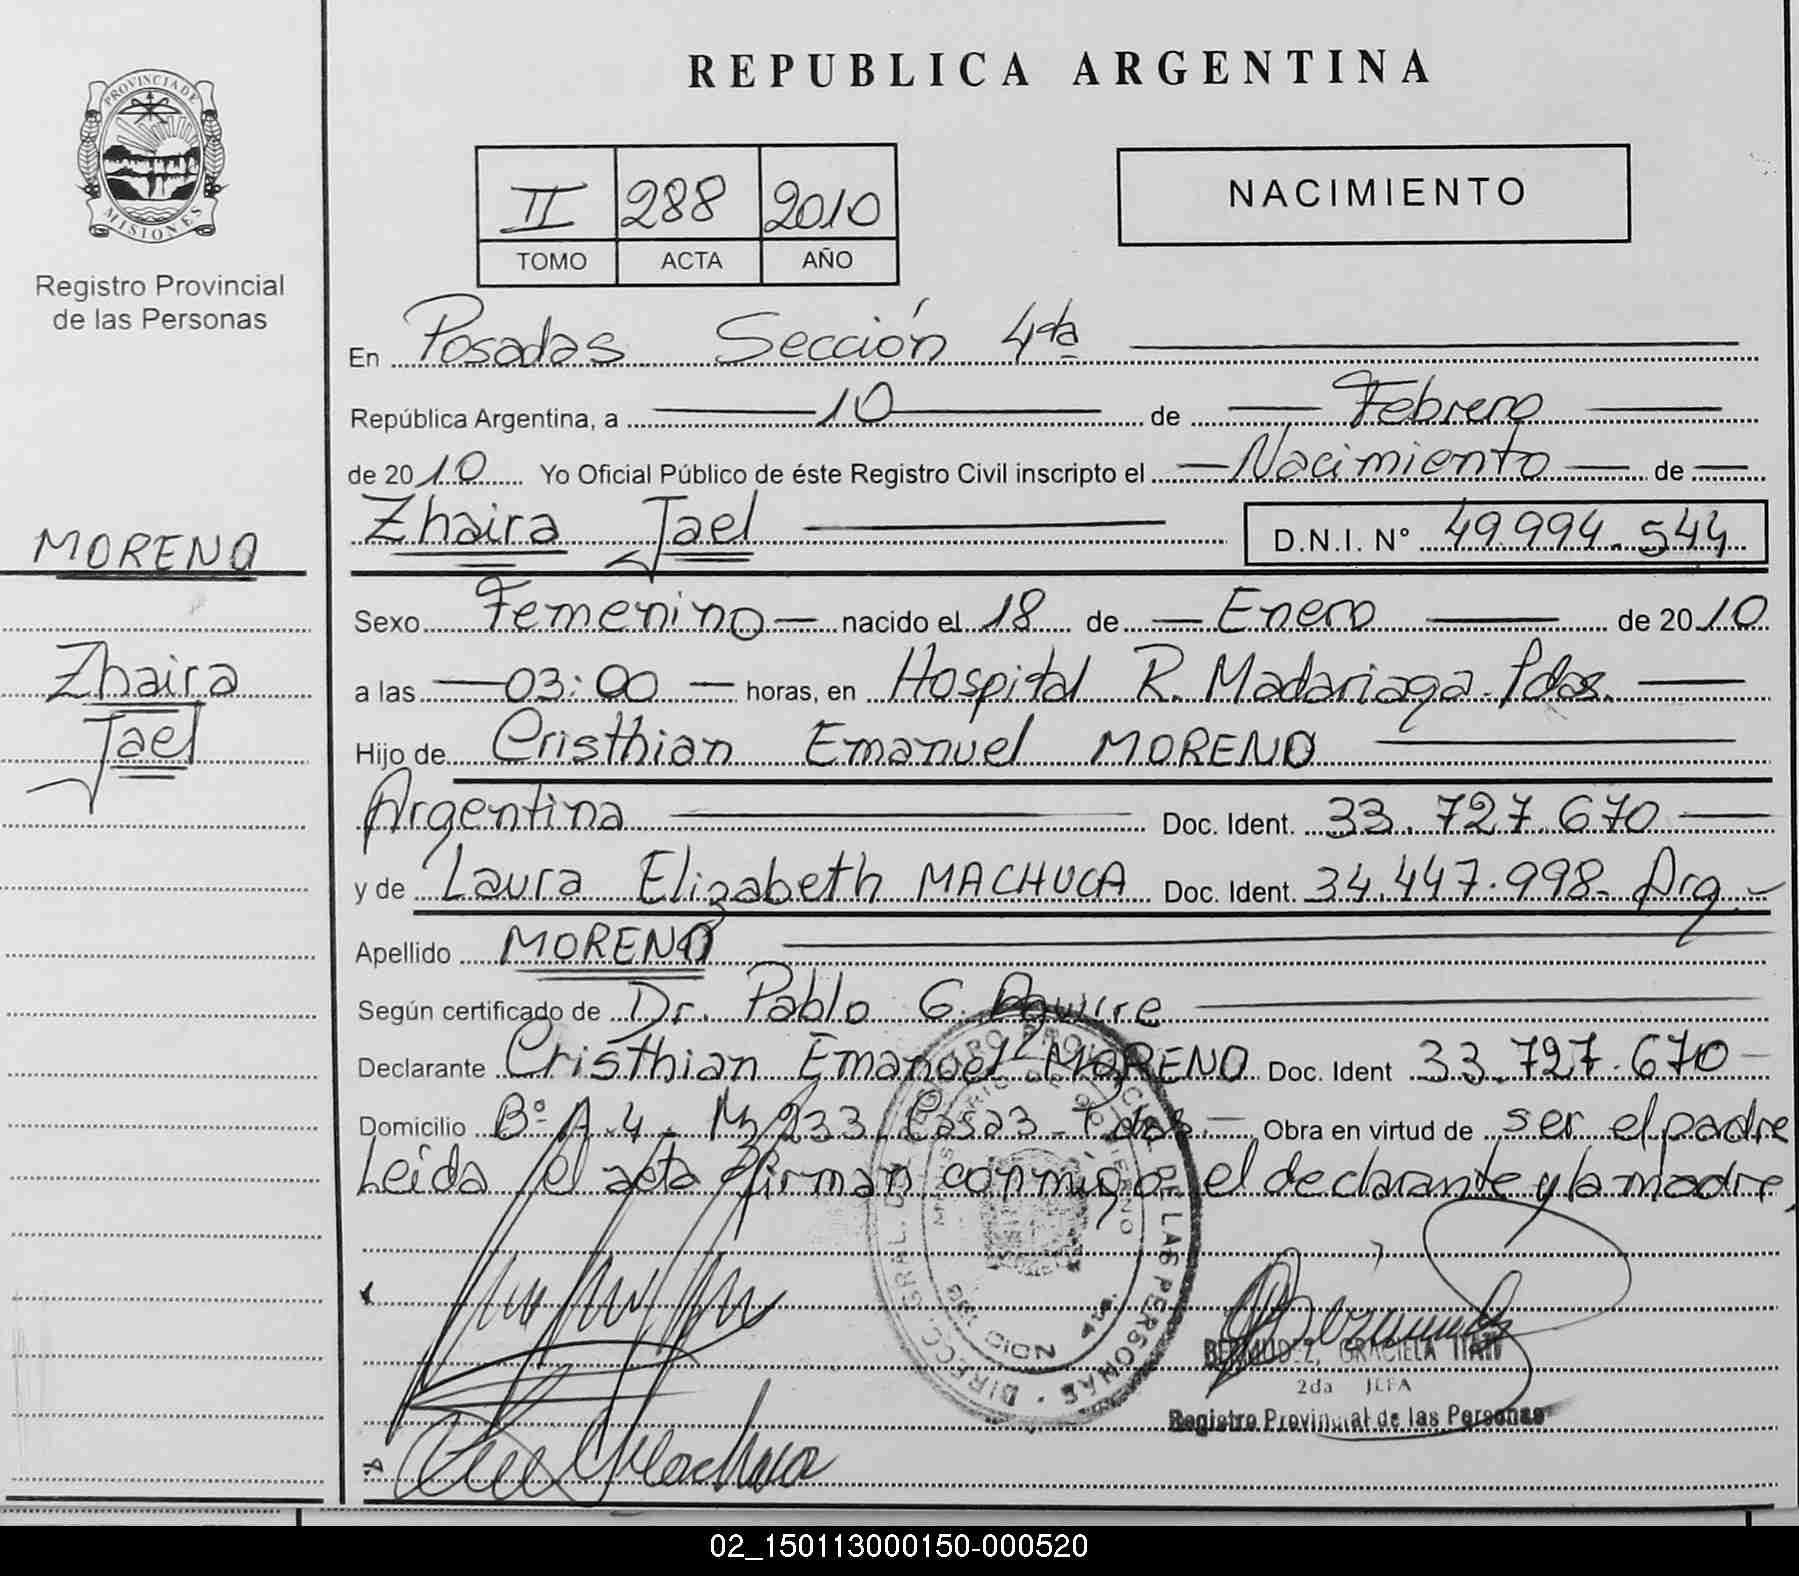 REPUBLICA ARGENTINA
PROVINCIA DE
MISIONES
Registro Provincial
de las Personas
II 288 2010
TOMO ACTA AÑO
NACIMIENTO
En Posadas Sección 4ta
República Argentina, a 10 de Febrero
de 2010 Yo Oficial Público de éste Registro Civil inscripto el Nacimiento de
MORENO
Zhaira Jael D.N.I. Nº 49.994.544
Sexo Femenino nacido el 18 de Enero de 2010
Zhaira
Jael
a las 03:00 horas, en Hospital R. Madariaga. Pdas.
Hijo de Cristhian Emanuel MORENO
Argentina Doc. Ident. 33.727.670
y de Laura Elizabeth MACHUCA Doc. Ident. 34.447.998. Arg.
Apellido MORENO
Según certificado de Dr. Pablo G. Aguirre
Declarante Cristhian Emanuel MORENO Doc. Ident 33.727.670
Domicilio Bº A.4. Mz 233 Casa 3 - Pdas. Obra en virtud de ser el padre
Leída el acta firman conmigo el declarante y la madre
DIRECC. GRAL. DEL REGISTRO PROVINCIAL DE LAS PERSONAS
MINISTERIO DE GOBIERNO
BERMUDEZ, GRACIELA ITATI
2da JEFA
Registro Provincial de las Personas
Machuca
02_150113000150-000520